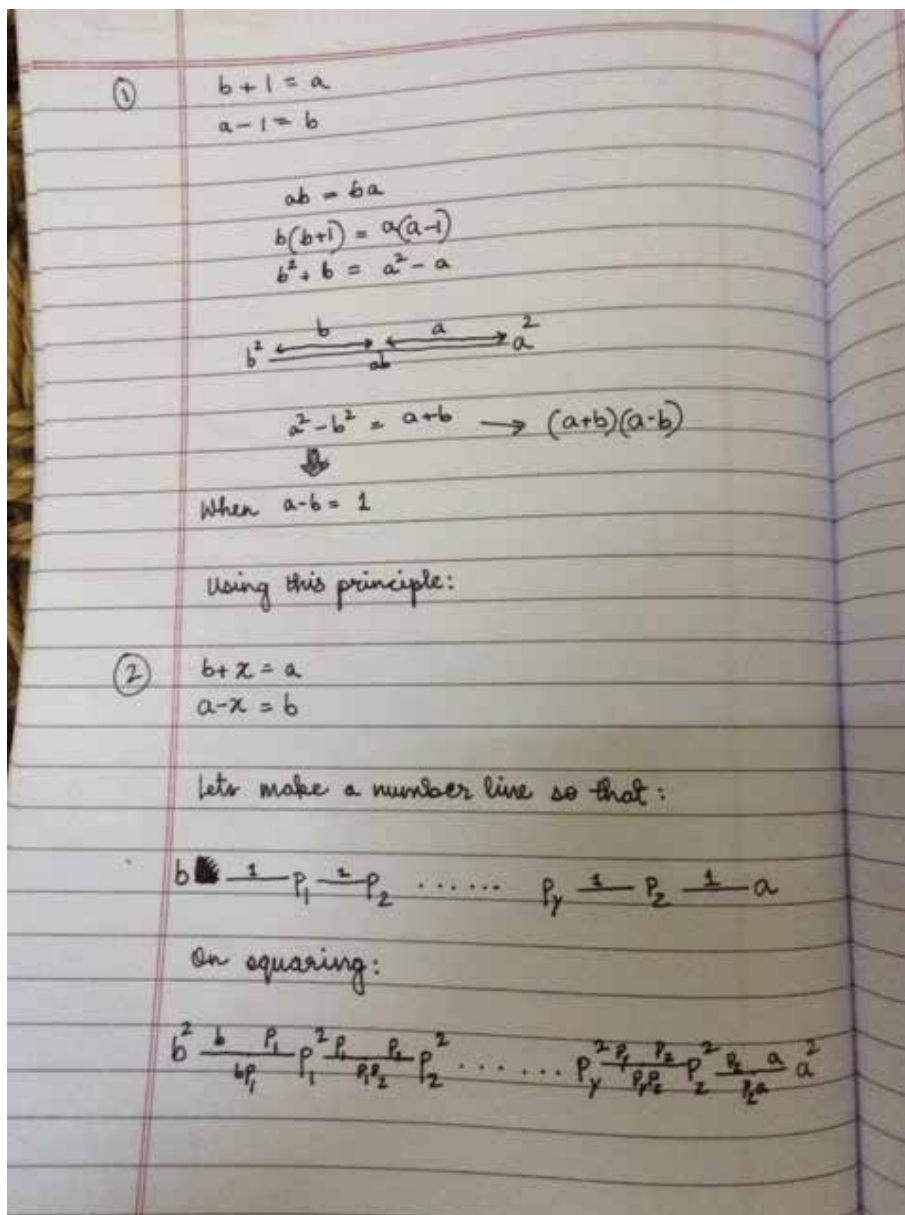 ① b + 1 = a
a - 1 = b
ab = ba
b(b+1) = a(a-1)
b² + b = a² - a
b a
b² a²
ab
a² - b² = a+b → (a+b)(a-b)
⇓
When a-b = 1
Using this principle:
② b + x = a
a - x = b
Lets make a number line so that :
b 1 P₁ 1 P₂ ...... Py 1 Pz 1 a
On squaring:
b² b P₁ P₁² P₁ P₂ P₂² ...... Py² Py Pz Pz² Pz a a²
bP₁ P₁P₂ PyPz Pza